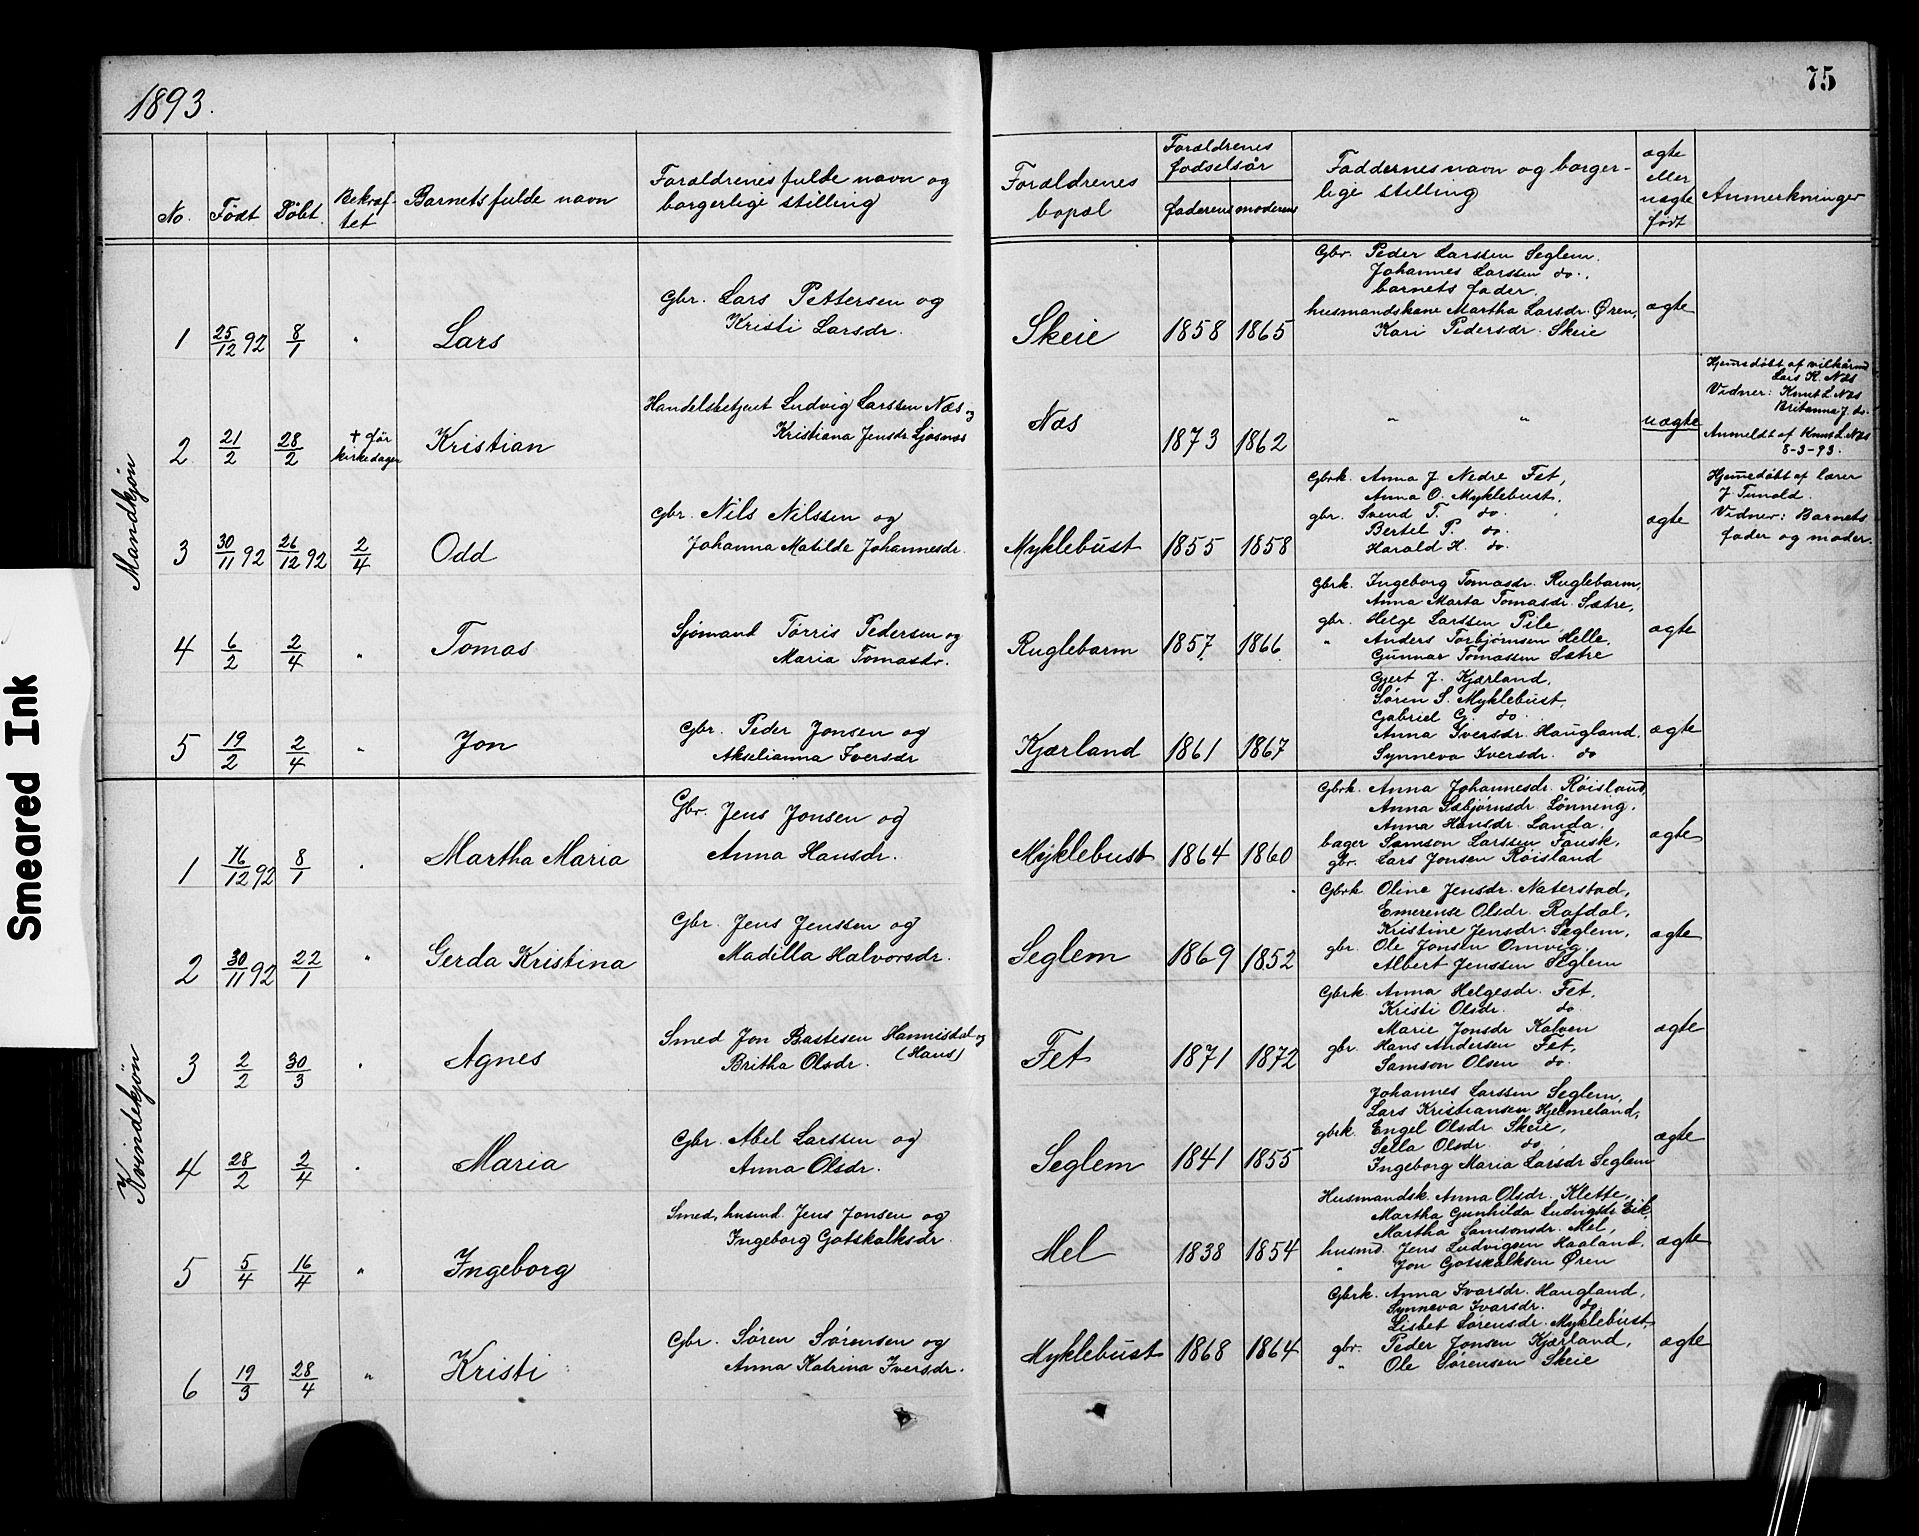 1893.
75
No.
Født
Døbt.
Bekræf-
tet
Barnets fulde navn
Forældrenes fulde navn og
borgerlige stilling
Forældrenes
bopæl
Forældrenes
fødselsår
faderens
moderens
Faddernes navn og borger-
lige stilling
ægte
eller
uægte
født
Anmerkninger
Mandkjøn
1 25/12 92 8/1 " Lars
Gbr. Lars Pettersen og
Kristi Larsdr.
Skeie 1858 1865
Gbr. Peder Larssen Seglem.
Johannes Larssen do.,
barnets fader,
husmandskone Martha Larsdr. Øren,
Kari Pedersdr. Skeie
ægte
2 21/2 28/2 + før
kirkedagen
Kristian
Handelsbetjent Ludvig Larssen Næs og
Kristiana Jensdr. Ljosnes
Næs 1873 1862
" "
uægte
Hjemedøbt af vilkårmd
Lars K. Næs
Vidner: Knut L. Næs
Britanna J. do.
Anmeldt af Knut L. Næs
8-3-93.
3 30/11 92 26/12 92 2/4 Odd
Gbr. Nils Nilssen og
Johanna Matilde Johannesdr.
Myklebust 1855 1858
Gbrk. Anna J. Nedre Fet,
Anna O. Myklebust,
gbr. Svend T. do.
Bertel P. do.
Harald H. do.
ægte
Hjemedøbt af lærer
J. Tunold.
Vidner: Barnets
fader og moder.
4 6/2 2/4 " Tomas
Sjømand Tørris Pedersen og
Maria Tomasdr.
Ruglebarm 1857 1866
Gbrk. Ingeborg Tomasdr. Ruglebarm,
Anna Marta Tomasdr. Sætre,
gbr. Helge Larssen Pile,
" Anders Torbjørnsen Helle,
Gunnar Tomassen Sætre
ægte
5 19/2 2/4 " Jon
Gbr. Peder Jonsen og
Akselianna Iversdr
Kjærland 1861 1867
Gjert J. Kjærland,
Søren S. Myklebust,
Gabriel G. do.
Anna Iversdr. Haugland,
Synneva Iversdr. do
ægte
Kvindekjøn
1 16/12 92 8/1 " Martha Maria
Gbr. Jens Jonsen og
Anna Hansdr.
Myklebust 1864 1860
Gbrk. Anna Johannesdr. Røisland,
Anna Sæbjørnsdr. Lønning,
Anna Hansdr. Landa,
bager Samson Larssen Fausk,
gbr. Lars Jonsen Røisland
ægte
2 30/11 92 22/1 " Gerda Kristina
Gbr. Jens Jenssen og
Madilla Halvorsdr.
Seglem 1869 1852
Gbrk Oline Jensdr. Naterstad,
Emerense Olsdr. Rafdal,
Kristine Jensdr. Seglem,
gbr. Ole Jonsen Omvig,
Albert Jenssen Seglem
ægte
3 2/2 30/3 " Agnes
Smed Jon Bastesen Hannisdal og
Britha Olsdr. (Haus)
Fet 1871 1872
Gbrk. Anna Helgesdr. Fet,
Kristi Olsdr. do.
Marie Jonsdr Kalven
gbr. Hans Andersen Fet,
Samson Olsen do.
ægte
4 28/2 2/4 " Maria
Gbr. Abel Larssen og
Anna Olsdr.
Seglem 1841 1855
Johannes Larssen Seglem,
Lars Kristiansen Hjelmeland,
gbrk. Engel Olsdr. Skeie,
Sella Olsdr. do
Ingeborg Maria Larsdr Seglem
ægte
5 5/4 16/4 " Ingeborg
Smed, husmd. Jens Jonsen og
Ingeborg Gotskalksdr.
Mel 1838 1854
Husmandsk. Anna Olsdr. Klette,
Martha Gunhilda Ludvigsdr Eik,
Martha Samsonsdr. Mel,
husmd. Jens Ludvigsen Haaland,
" Jon Gotskalksen Øren
ægte
6 19/3 28/4 " Kristi
Gbr. Søren Sørensen og
Anna Katrina Iversdr.
Myklebust 1868 1864
Gbrk. Anna Ivarsdr. Haugland,
Synneva Ivarsdr. do
Lisbet Sørensdr. Myklebust,
gbr. Peder Jonsen Kjærland,
" Ole Sørensen Skeie
ægte
Smeared Ink